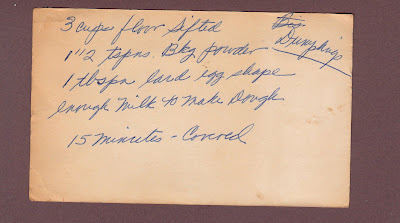 3 cups floor Sifted
Dumplings
1 1/2 tspns. Bkg powder
1 tbspn lard egg shape
enough Milk to Make Dough
15 Minutes - Covered